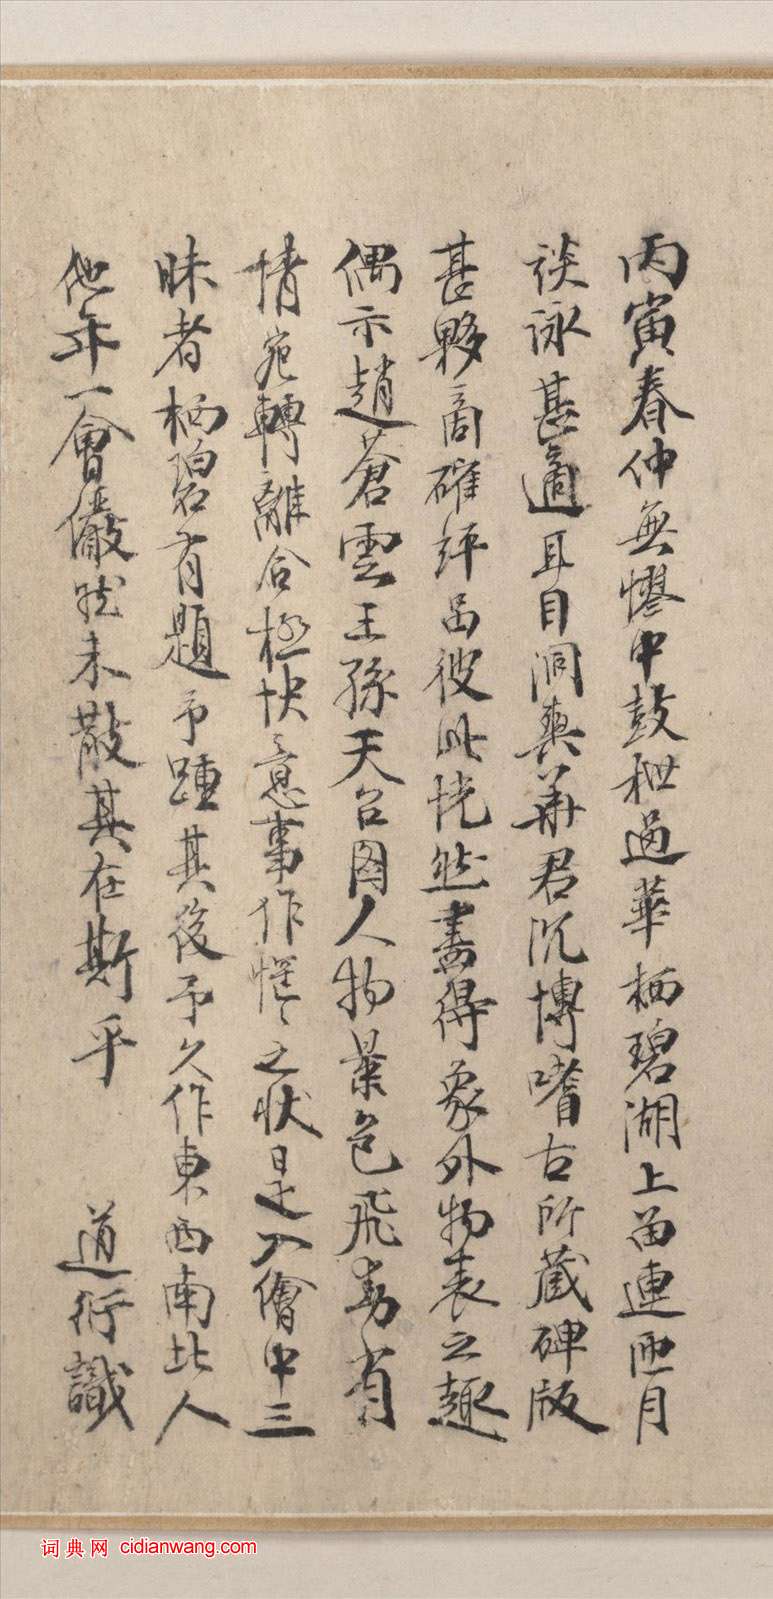 丙寅春仲無憀中鼓枻過華栖碧湖上留連匝月
談詠甚適耳目洞爽華君沉博嗜古所藏碑版
甚夥商確評品彼此恍然畫得象外物表之趣
偶示趙蒼雲王孫天台圖人物景色飛動有
情宛轉離合極快快意事作惓惓之狀是入繪中三
昧者栖碧有題予踵其後予久作東西南北人
他年一會儼然未散其在斯乎
道衍識
词典网 cidianwang.com